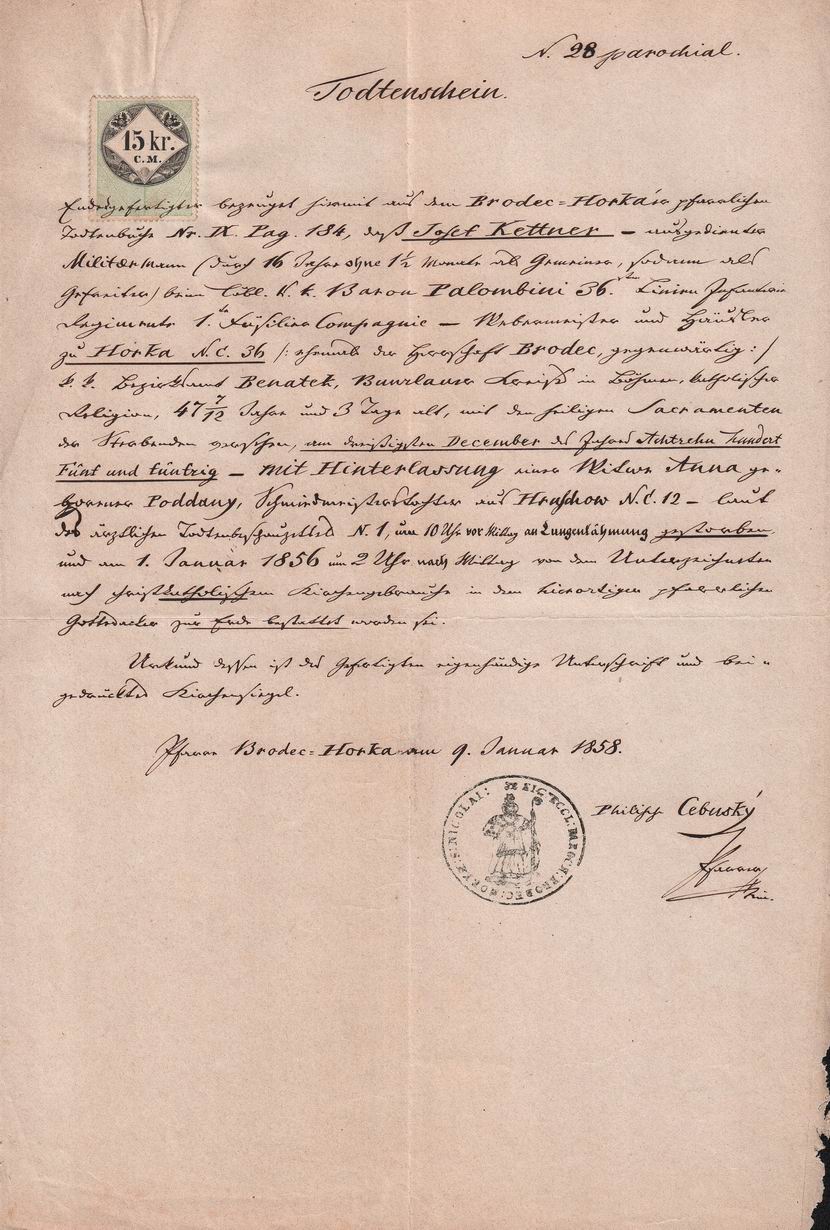 N. 28 parochial.
Todtenschein.
15 kr.
C.M.
Endesgefertigter bezeuget hiermit aus dem Brodec=Horka'er pfarrlichen
Todtenbuche Nr. IX. Pag. 184, daß Josef Kettner – ausgedienter
Militärmann (durch 16 Jahre ohne 1½ Monate als Gemeiner, sodann als
Gefreiter) beim löbl. K. k. Baron Palombini 36.sten Linien Infanterie
Regimente 1. Füsilier Compagnie – Webermeister und Häusler
zu Horka N.C. 36 /: ehemals der Herrschaft Brodec, gegenwärtig :/
k. k. Bezirksamt Benatek, Bunzlauer Kreises in Böhmen, katholischer
Religion, 47 7/12 Jahre und 3 Tage alt, mit den heiligen Sacramenten
der Sterbenden versehen, am dreißigsten December des Jahres Achtzehn hundert
Fünf und fünfzig – mit Hinterlassung einer Witwe Anna ge-
borener Poddany, Schmiedmeisterstochter aus Hruschow N.C. 12 – laut
des ärztlichen Todtenbeschauzettels N. 1, um 10 Uhr vor Mittag an Lungenlähmung gestorben,
und am 1. Januar 1856 um 2 Uhr nach Mittag von dem Unterzeichneten
nach christkatholischem Kirchengebrauche in dem hierortigen pfarrlichen
Gottesacker zur Erde bestattet worden sei.
Urkund dessen ist des Gefertigten eigenhändige Unterschrift und bei=
gedrucktes Kirchensiegel.
Pfarre Brodec=Horka am 9. Januar 1858.
SIG: ECCL: PAROCH: BRODEC: HORKÆ S: NICOLAI:
Philipp Cebuský
Pfarrer